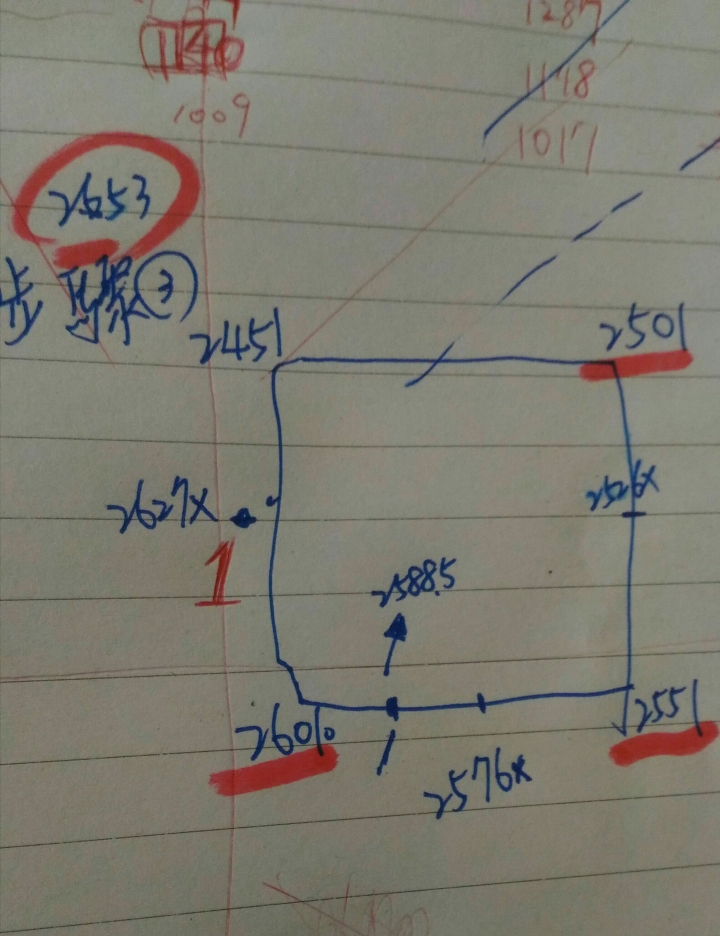 1287
1140
1148
1009
1017
2653
步 ③
2451
2501
2627x
2526x
1
25885
2601
2551
2576x